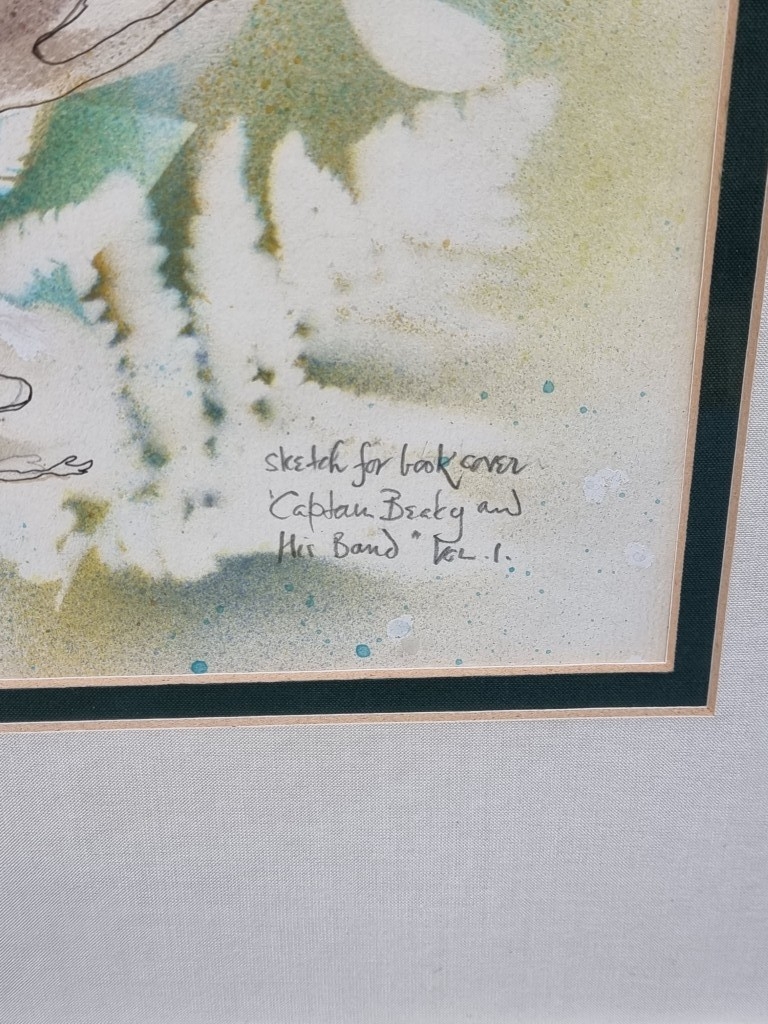 sketch for book cover
'Captain Beaky and
His Band" Vol. 1.